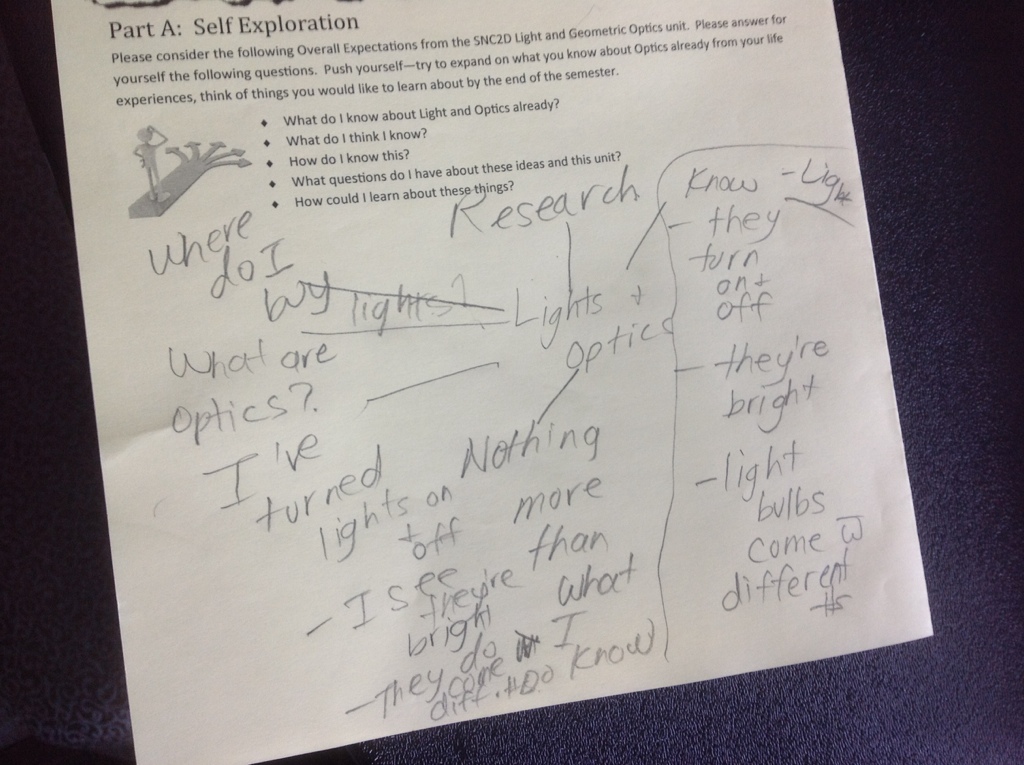 Part A: Self Exploration
Please consider the following Overall Expectations from the SNC2D Light and Geometric Optics unit. Please answer for
yourself the following questions. Push yourself—try to expand on what you know about Optics already from your life
experiences, think of things you would like to learn about by the end of the semester.
♦ What do I know about Light and Optics already?
♦ What do I think I know?
♦ How do I know this?
♦ What questions do I have about these ideas and this unit?
♦ How could I learn about these things?
Research
where
do I
buy lights?
Lights +
optics
What are
optics?
I've
turned
lights on
+ off
- I see
they're
bright
- They do
come
diff. #
Nothing
more
than
what
I
Do know
Know - Light
- they
turn
on +
off
- they're
bright
- light
bulbs
come w
different
#s